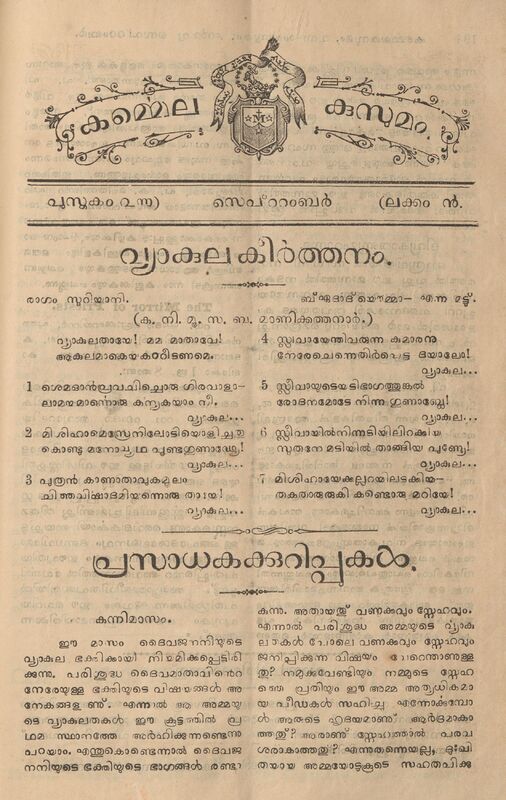 കൎമ്മെല കുസുമം.
പുസ്തകം ൨ ന്നു) സെപ്ററംബർ (ലക്കം ൻ.
വ്യാകുല കീർത്തനം.
രാഗം സുറിയാനി.
ബ്ഏദാദ് യൌമ്മാ- എന്ന മട്ട്.
(ക. നി. മൂ. സ. ബ. മാണിക്കത്തനാർ.)
വ്യാകുലതായേ! മമ മാതാവേ!
ആകുലമാകെയകാററിടണമെ.
1 ശെമഓൻപ്രവചിച്ചൊരു ഗിരവാളാ—
ലാമയമാൎന്നൊരു കന്യകയാം നീ.
വ്യാകുല...
2 മിശിഹാമെസ്രേനിലോടിയൊളിച്ചതു
കൊണ്ടു മനോവ്യഥ പൂണ്ടഗുണാഢ്യേ!
വ്യാകുല...
3 പുത്രൻ കാണാതാവുകമൂലം
ചിത്തവിഷാദമിയന്നൊരു തായേ!
വ്യാകുല...
4 സ്ലീവായേന്തിവരുന്ന കുമാരനു
നേരേചെന്നെതിർപെട്ട ദയാലോ!
വ്യാകുല...
5 സ്ലീവായുടെയടിഭാഗത്തുങ്കൽ
രോദനമോടേ നിന്ന ഗുണാബ്ധേ!
വ്യാകുല...
6 സ്ലീവായിൽനിന്നടിയിലിറക്കിയ
സുതനേ മടിയിൽ താങ്ങിയ പുണ്യേ!
വ്യാകുല...
7 മിശിഹായേക്കല്ലറയിലടക്കിയ—
തകതാരുരുകി കണ്ടൊരു മറിയേ!
വ്യാകുല...
പ്രസാധകക്കുറിപ്പുകൾ.
കന്നിമാസം.
ഈ മാസം ദൈവജനനിയുടെ
വ്യാകുല ഭക്തിക്കായി നിയമിക്കപ്പെട്ടിരി
ക്കുന്നു. പരിശുദ്ധ ദൈവമാതാവിൻെറ
നേരേയുള്ള ഭക്തിയുടെ വിഷയങ്ങൾ അ
നേകങ്ങളുണ്ട്. എന്നാൽ ആ അമ്മയു
ടെ വ്യാകുലതകൾ ഈ കൂട്ടത്തിൽ പ്ര
ഥമ സ്ഥാനത്തേ അർഹിക്കുന്നുണ്ടെന്നു
പറയാം. എന്തുകൊണ്ടെന്നാൽ ദൈവജ
നനിയുടെ ഭക്തിയുടെ ഭാഗങ്ങൾ രണ്ടാ
കുന്നു. അതായതു് വണക്കവും സ്നേഹവും.
എന്നാൽ പരിശുദ്ധ അമ്മയുടെ വ്യാകു
ലതകൾ പോലെ വണക്കവും സ്നേഹവും
ജനിപ്പിക്കുന്ന വിഷയം വേറെന്താണുള്ള
തു്? നമുക്കുവേണ്ടിയും നമ്മുടെ സ്നേഹ
ത്തെ പ്രതിയും ഈ അമ്മ അത്യധികമാ
യ പീഡകൾ സഹിച്ചു എന്നോൎക്കുമ്പോ
ൾ ആരുടെ ഹൃദയമാണു് ആർദ്രമാകാ
ത്തതു്? ആരാണു് സ്നേഹത്താൽ പരവ
ശരാകാത്തതു്? എന്നുതന്നെയല്ല, ദുഃഖി
തയായ അമ്മയോടുകൂടെ സഹതപിക്കു